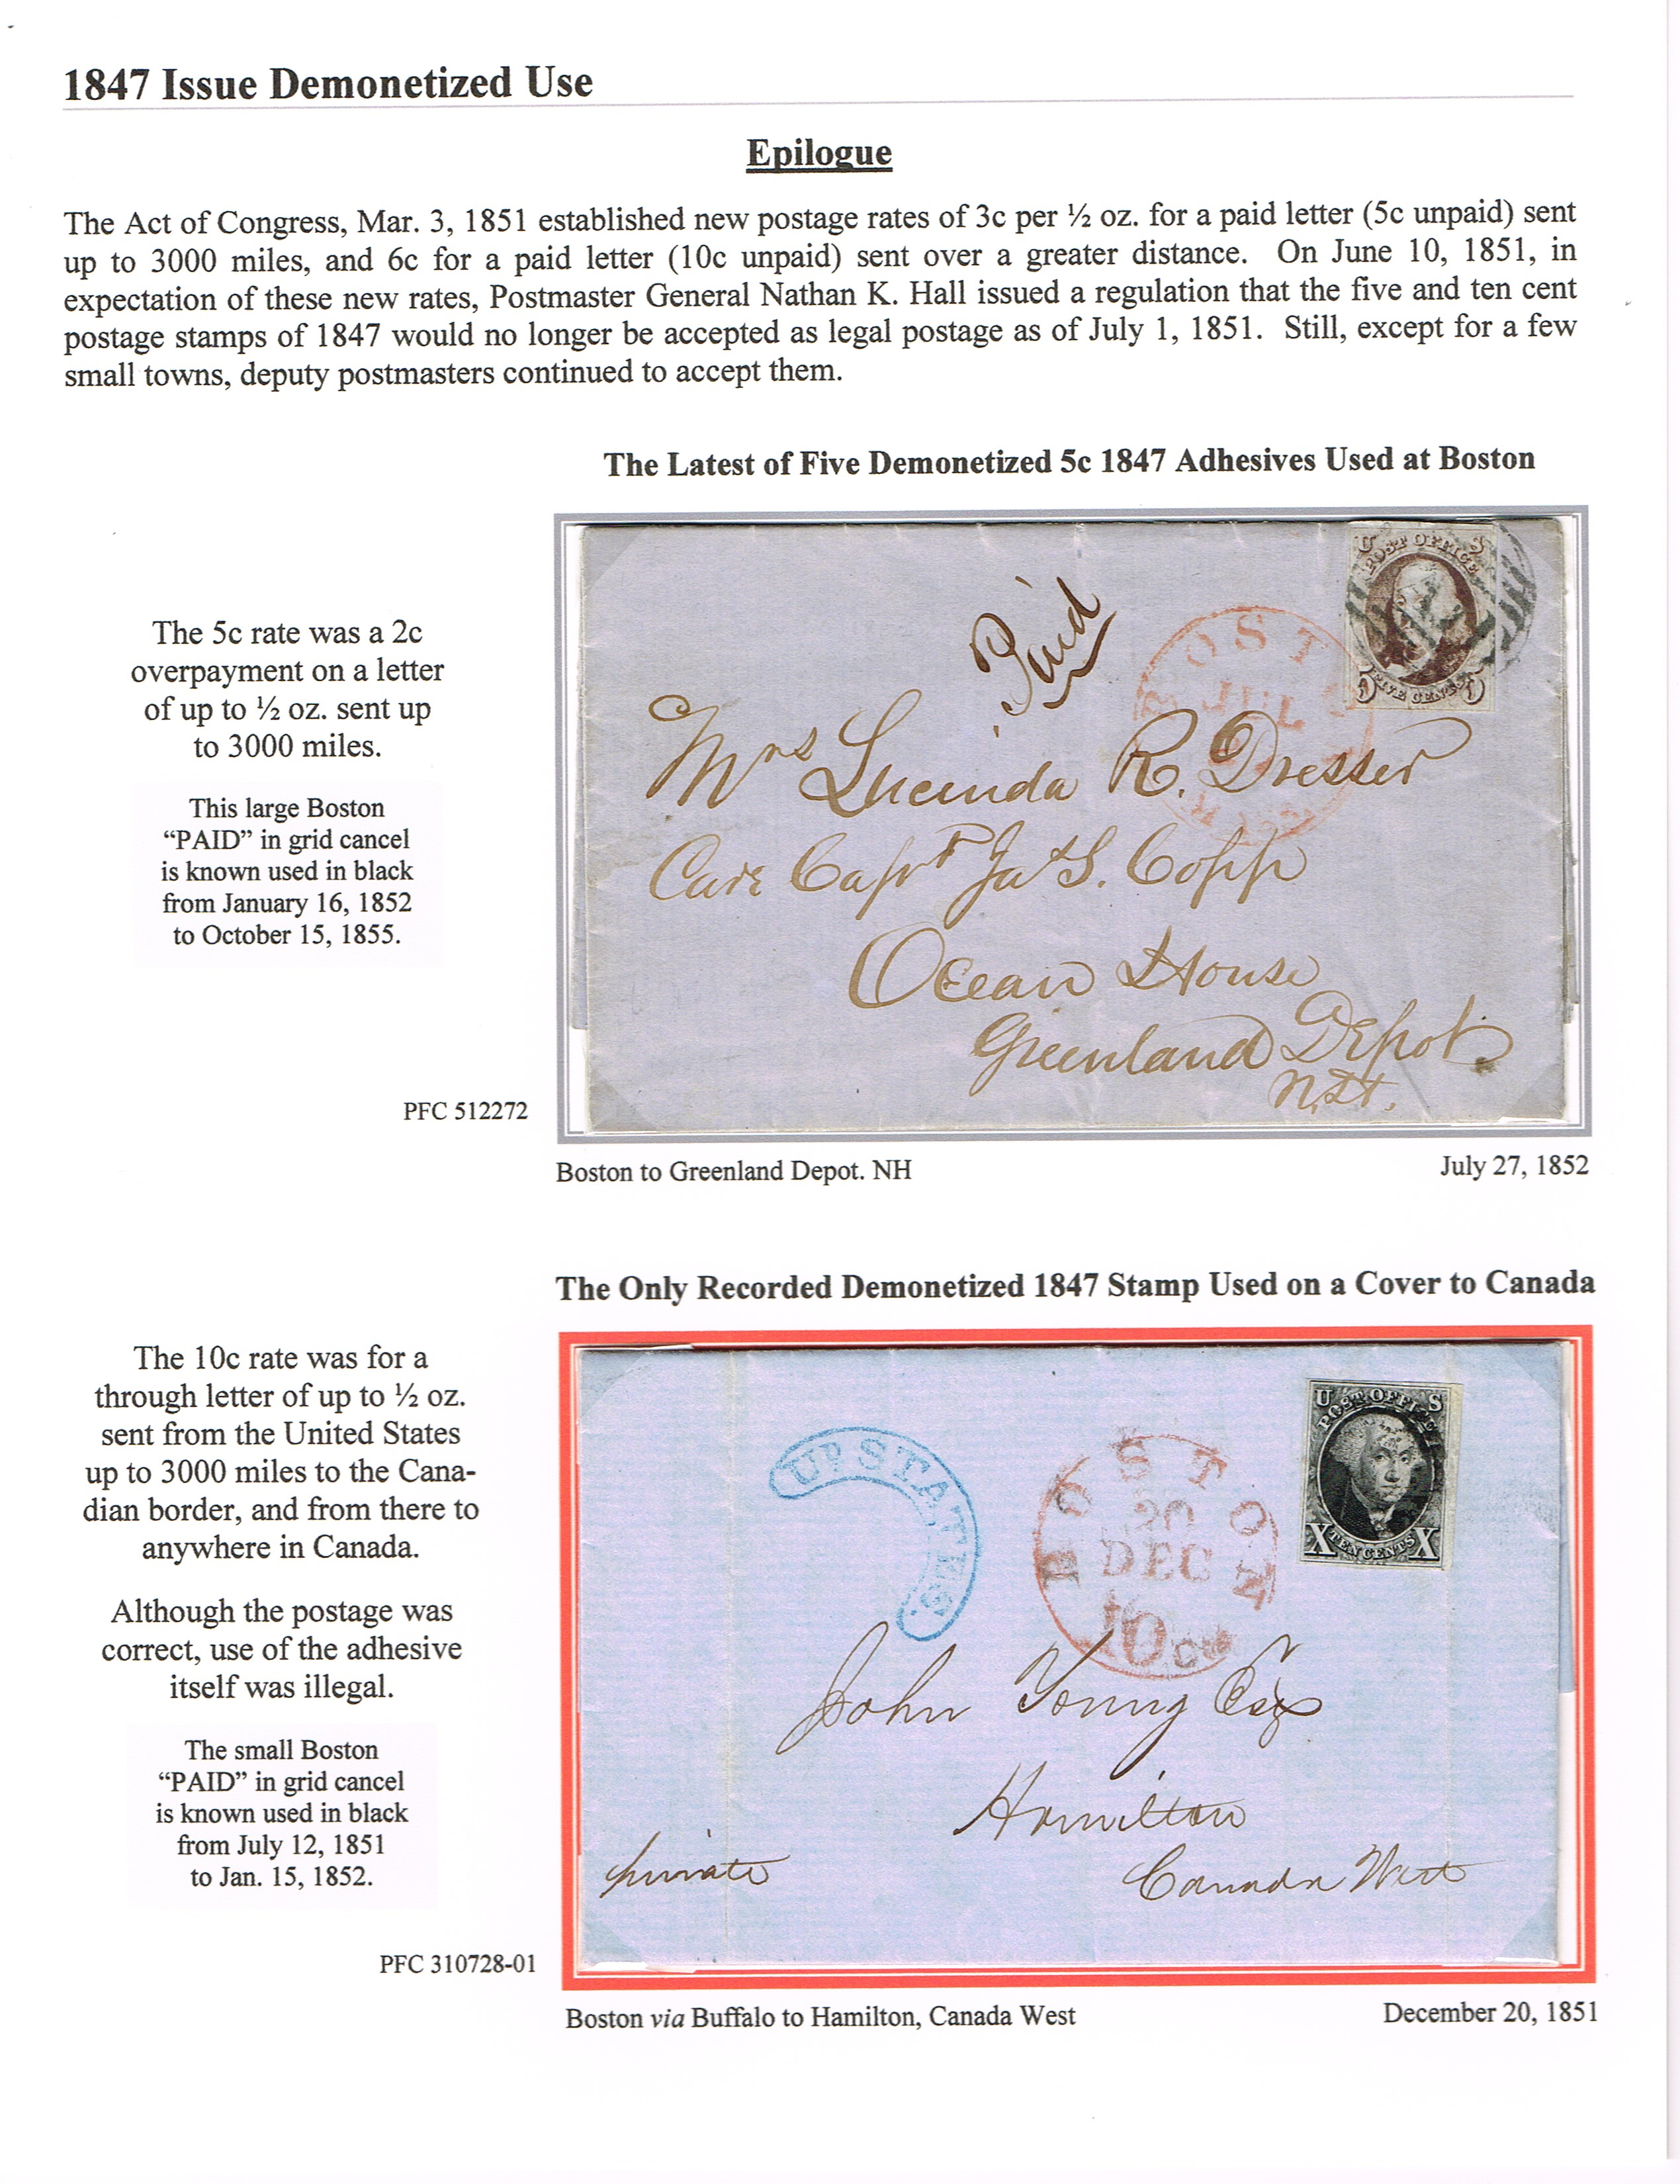 1847 Issue Demonetized Use
Epilogue
The Act of Congress, Mar. 3, 1851 established new postage rates of 3c per ½ oz. for a paid letter (5c unpaid) sent
up to 3000 miles, and 6c for a paid letter (10c unpaid) sent over a greater distance. On June 10, 1851, in
expectation of these new rates, Postmaster General Nathan K. Hall issued a regulation that the five and ten cent
postage stamps of 1847 would no longer be accepted as legal postage as of July 1, 1851. Still, except for a few
small towns, deputy postmasters continued to accept them.
The Latest of Five Demonetized 5c 1847 Adhesives Used at Boston
The 5c rate was a 2c
overpayment on a letter
of up to ½ oz. sent up
to 3000 miles.
This large Boston
“PAID” in grid cancel
is known used in black
from January 16, 1852
to October 15, 1855.
PFC 512272
U S
POST OFFICE
FIVE CENTS
5 5
Paid
BOST
JUL
Mrs Lucinda R. Dresser
Care Capt Jas S. Copp
Ocean House
Greenland Depot
N.H.
Boston to Greenland Depot. NH
July 27, 1852
The Only Recorded Demonetized 1847 Stamp Used on a Cover to Canada
The 10c rate was for a
through letter of up to ½ oz.
sent from the United States
up to 3000 miles to the Cana-
dian border, and from there to
anywhere in Canada.
Although the postage was
correct, use of the adhesive
itself was illegal.
The small Boston
“PAID” in grid cancel
is known used in black
from July 12, 1851
to Jan. 15, 1852.
PFC 310728-01
UD STATES.
BOSTON
20
DEC
10 cts
U S
POST OFFICE
X TEN CENTS X
John Young Esq
Hamilton
Canada West
private
Boston via Buffalo to Hamilton, Canada West
December 20, 1851